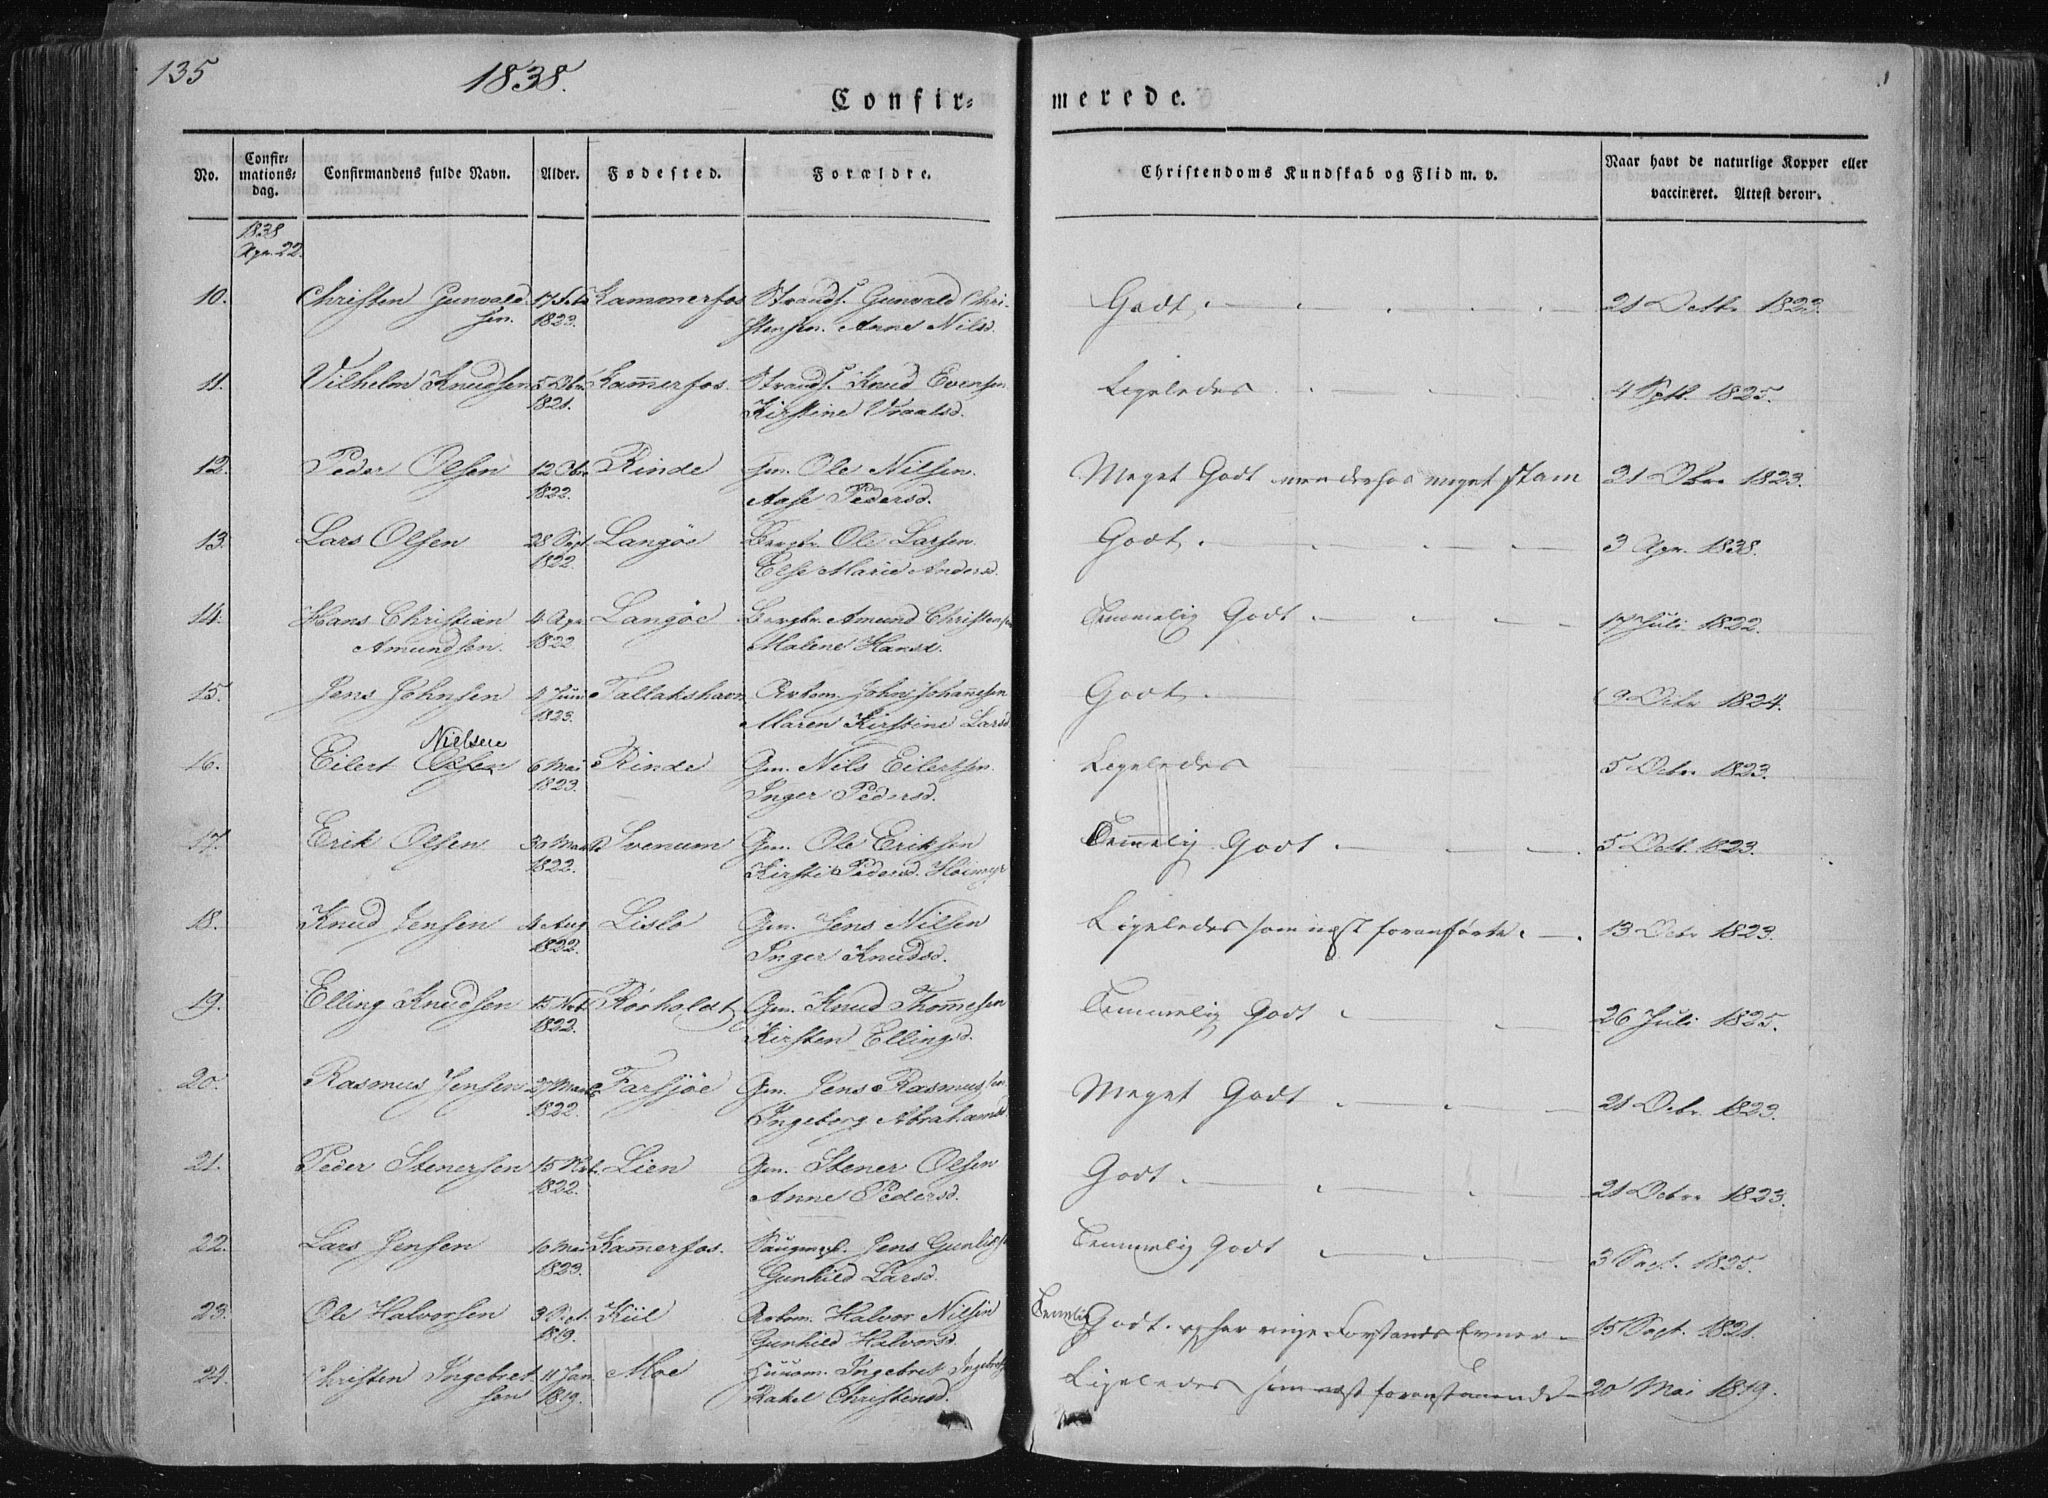 135
1838.
Confir- merede.
No. Confir-mations-dag. Confirmandens fulde Navn. Alder. Fødested. Forældre. Christendoms Kundskab og Flid m. v. Naar havt de naturlige Kopper eller vaccineret. Attest derom.
1838
Apr. 22.
10. Christen Gunvald- 17 Kammerfos Strands. Gunvald Chri- Godt 21 Octbr 1823.
sen. 1823. stensen. Anne Nilsd.
11. Vilhelm Knudsen 5 Kam̄erfos. Strands. Knud Evensen Ligeledes 4 Sept. 1825.
1821. Kirstine Vraalsd.
12. Peder Olsen 12 Rinde Gm. Ole Nilsen. Meget Godt men derhos meget stam 21 1823.
1822. Aase Pedersd.
13. Lars Olsen 28 Sept. Langöe Bergbr. Ole Larsen. Godt. 3 Apr. 1838.
1822. Else Marie Andersd.
14. Hans Christian 4 Apr. Langöe Bergbr. Amund Christensen Temmelig Godt 17 Juli 1822.
Amundsen. 1822. Malene Hansd.
15. Jens Johnsen 4 Juni Tallakshavn Arbm. John Johan̄esen Godt. 9 Octbr 1824.
1823. Maren Kirstine Larsd.
Nielsen
16. Eilert Olsen 6 Mai Rinde Gm. Nils Eilertsen. Ligeledes 5 Octbr 1823.
1823. Inger Pedersd.
17. Erik Olsen 30 Marts Svenum Gm. Ole Eriksen Tem̄elig Godt 5 Octb. 1823.
1822. Kirsti Pedersd. Höimyr
18. Knud Jensen 4 Aug. Lislo Gm. Jens Nilsen Ligeledes som næst foranførte. 13 Octbr 1823.
1822. Inger Knudsd.
19. Elling Knudsen 15 Nov. Rörholdt Gm. Knud Thom̄esen Temmelig Godt 26 Juli 1825.
1822. Kirsten Ellingsd.
20. Rasmus Jensen 27 Marts Farsjöe Gm. Jens Rasmussen Meget Godt 21 Octbr 1823.
1822. Ingeborg Abrahamsd.
21. Peder Stenersen 15 Lien Gm. Stener Olsen Godt. 21 Octbr 1823.
1822. Anne Pedersd.
22. Lars Jensen 16 Mai Kam̄erfos. Saugmst. Jens Gunliks. Temmelig Godt 3 Sept. 1825.
1823. Gunhild Larsd.
23. Ole Halvorsen 3 Kiil Arbm. Halvor Nilsen Tem̄elig Godt. og har ringe Forstands Evner 15 Sept. 1821.
1819. Gunhild Halvorsd.
24. Christen Ingebret- 11 Jan. Moe Huusm. Ingebret Ingebrets. Ligeledes som næst foranstaaende 20 Mai 1819.
sen 1819. Rakel Christensd.